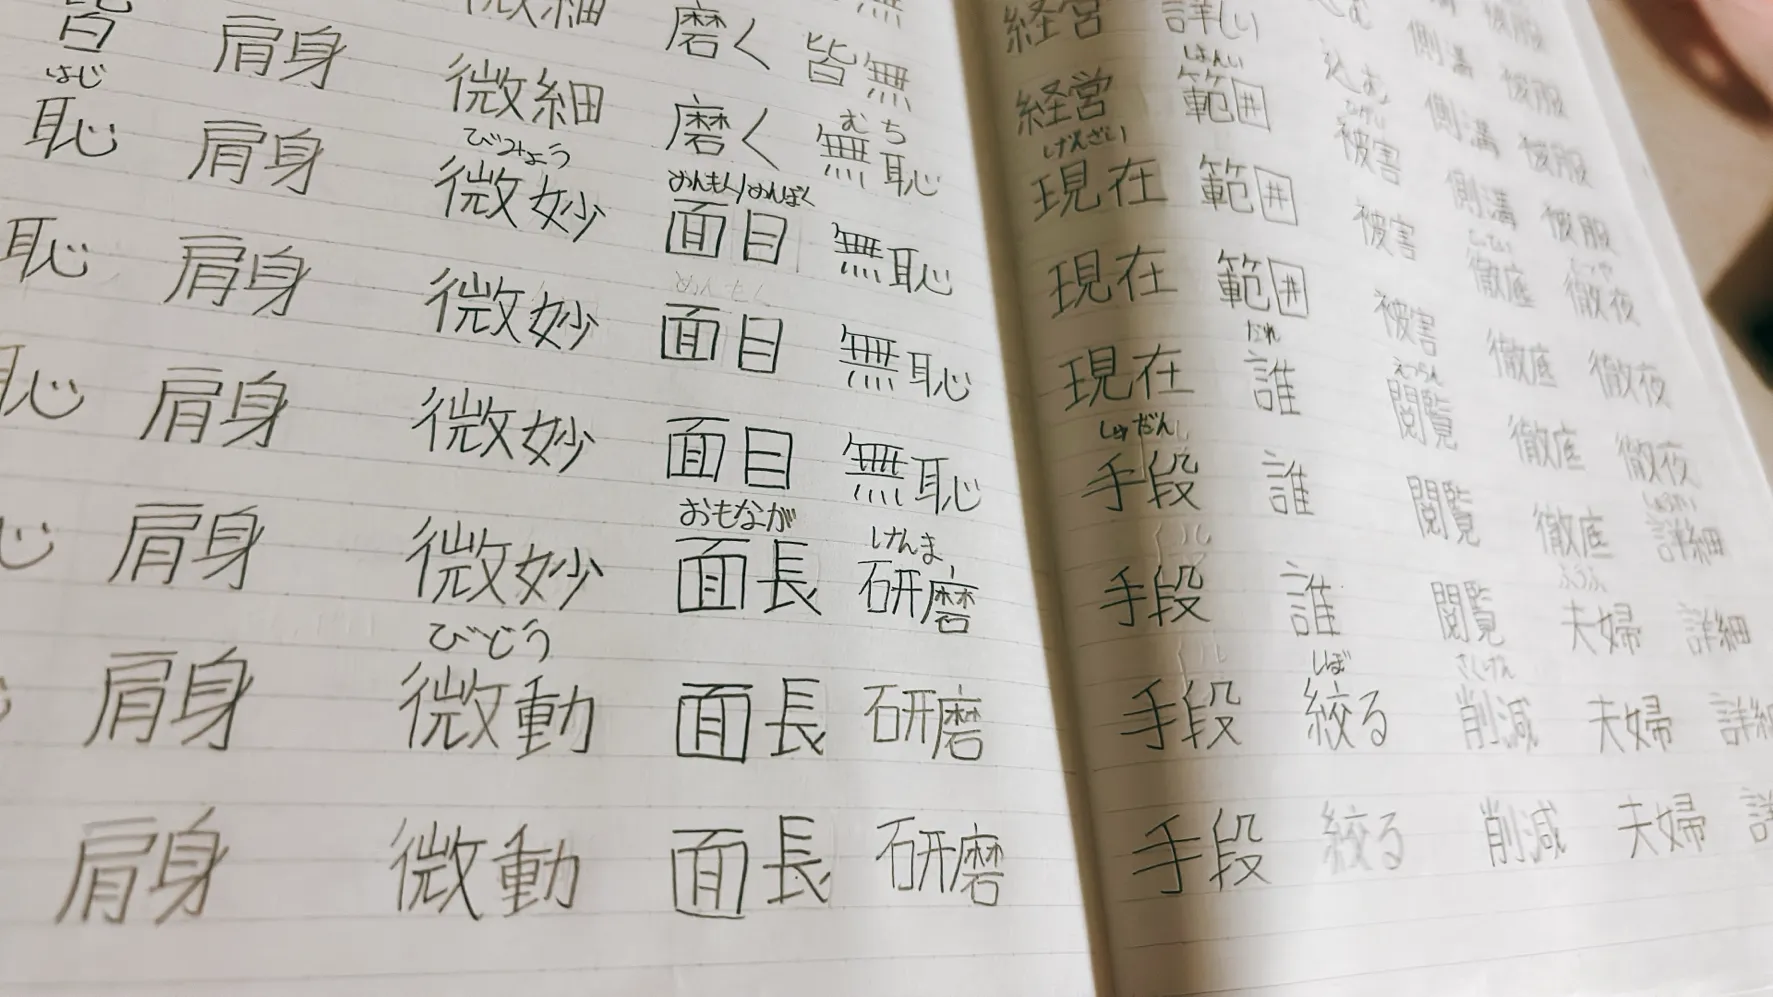 皆
はじ
恥
恥
恥
肩身
肩身
肩身
肩身
肩身
肩身
肩身
微細
微細
びみょう
微妙
微妙
微妙
微妙
びどう
微動
微動
磨く
磨く
めんもく/めんぼく
面目
面目
面目
おもなが
面長
面長
面長
無
皆無
むち
無恥
無恥
無恥
無恥
けんま
研磨
研磨
研磨
経営
経営
げんざい
現在
現在
現在
しゅだん
手段
手段
手段
手段
詳しい
はんい
範囲
範囲
範囲
だれ
誰
誰
誰
しぼ
絞る
絞る
込む
込む
ひがい
被害
被害
被害
えつらん
閲覧
閲覧
閲覧
さくげん
削減
削減
側溝
側溝
側溝
てってい
徹底
徹底
徹底
徹底
ふうふ
夫婦
夫婦
夫婦
被服
被服
被服
被服
てつや
徹夜
徹夜
徹夜
しょうさい
詳細
詳細
詳細